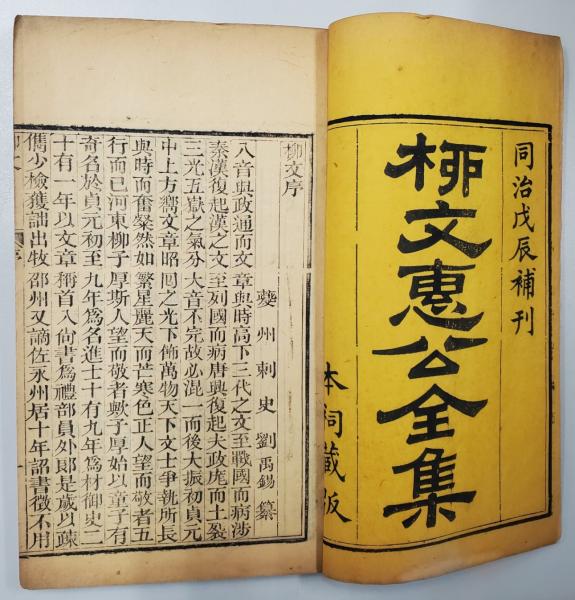 同治戊辰補刊
柳文惠公全集
本祠藏板
柳文序
夔州刺史劉禹錫纂
八音與政通而文章與時高下三代之文至戰國而病涉
秦漢復起漢之文至列國而病唐興復起夫政厖而土裂
三光五嶽之氣分大音不完故必混一而後大振初貞元
中上方嚮文章昭囘之光下飾萬物天下文士爭執所長
與時而奮粲然如繁星麗天而芒寒色正人望而敬者五
行而已河東柳子厚斯人望而敬者歟子厚始以童子有
奇名於貞元初至九年爲名進士十有九年爲材御史二
十有一年以文章稱首入尚書爲禮部員外郎是歲以疎
儁少檢獲訕出牧邵州又謫佐永州居十年詔書徵不用